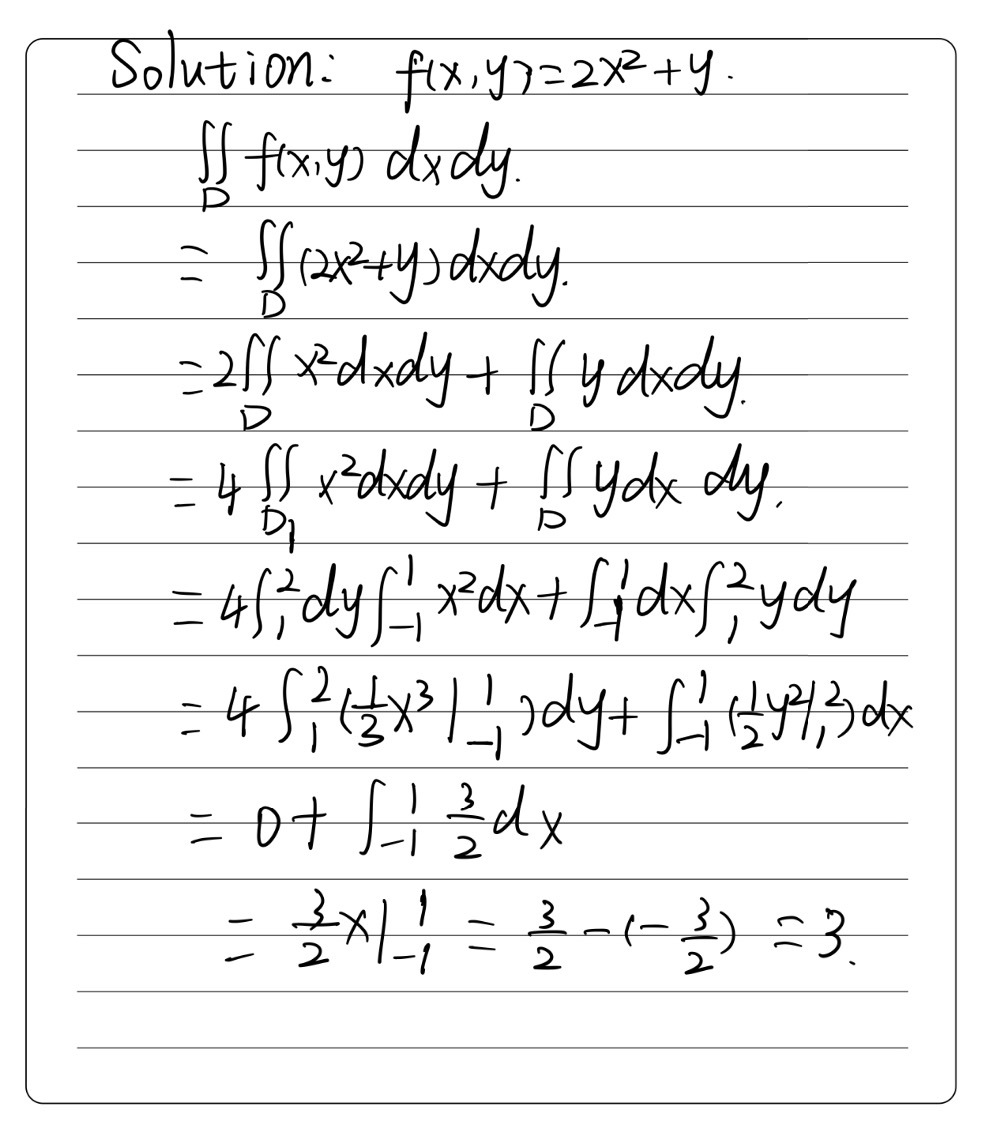 Solution: f(x,y)=2x²+y.
∬_D f(x,y) dxdy.
= ∬_D (2x²+y)dxdy.
=2∬_D x²dxdy + ∬_D y dxdy.
= 4∬_{D₁} x²dxdy + ∬_D ydx dy.
= 4∫₁² dy∫₋₁¹ x²dx + ∫₋₁¹ dx∫₁² ydy
= 4∫₁² (1/3 x³|₋₁¹)dy + ∫₋₁¹ (1/2 y²|₁²)dx
= 0 + ∫₋₁¹ 3/2 dx
= 3/2 x|₋₁¹ = 3/2 - (- 3/2) = 3.